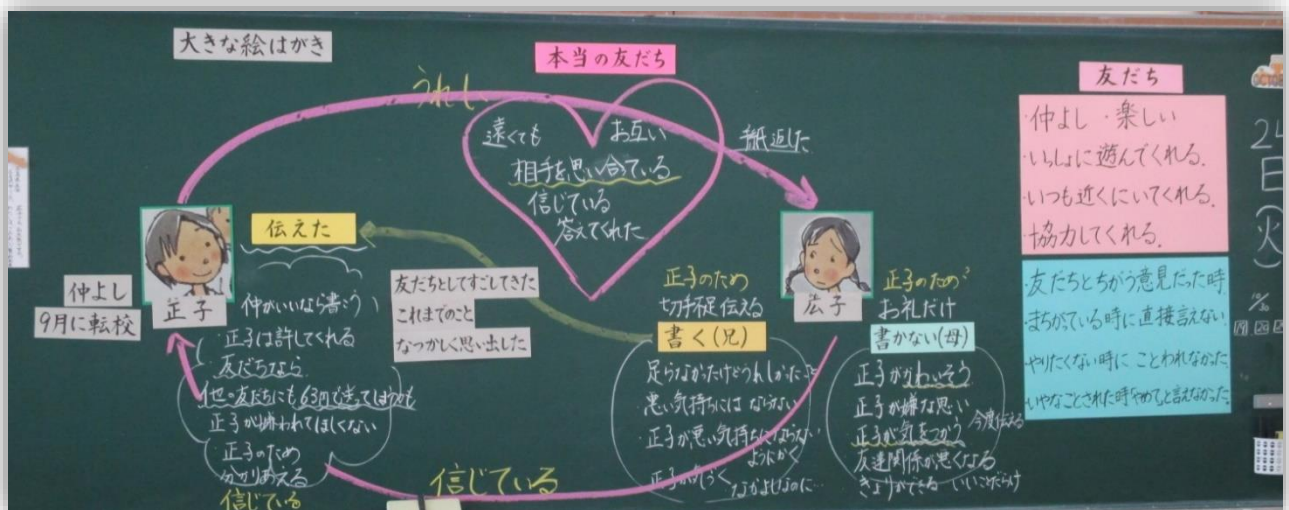 大きな絵はがき
本当の友だち
うれしい
遠くても お互い
相手を思い合っている
信じている
答えてくれた
返した
正子
仲よし
9月に転校
伝えた
仲がいいなら書こう
・正子は許してくれる
・友だちなら
他の友だちにも63円で送ってしまうかも
正子が嫌われてほしくない
・正子のため
分かりあえる
信じている
友だちとしてすごしてきた
これまでのこと
なつかしく思い出した
信じている
広子
正子のため
切手不足伝える
書く(兄)
足らなかったけどうれしかった
悪い気持ちにはならない
・正子が悪い気持ちにならない
ようにかく
なかよしなのに…
正子のため?
お礼だけ
書かない(母)
正子がかわいそう
正子が嫌な思い
正子が気をつかう 今度伝える
友達関係が悪くなる
きょりができる いいことだらけ
友だち
・仲よし ・楽しい
・いっしょに遊んでくれる。
・いつも近くにいてくれる。
・協力してくれる。
・友だちとちがう意見だった時
・まちがっている時に直接言えない。
・やりたくない時に ことわれなかった
・いやなことされた時「やめて」と言えなかった。
日
(火)